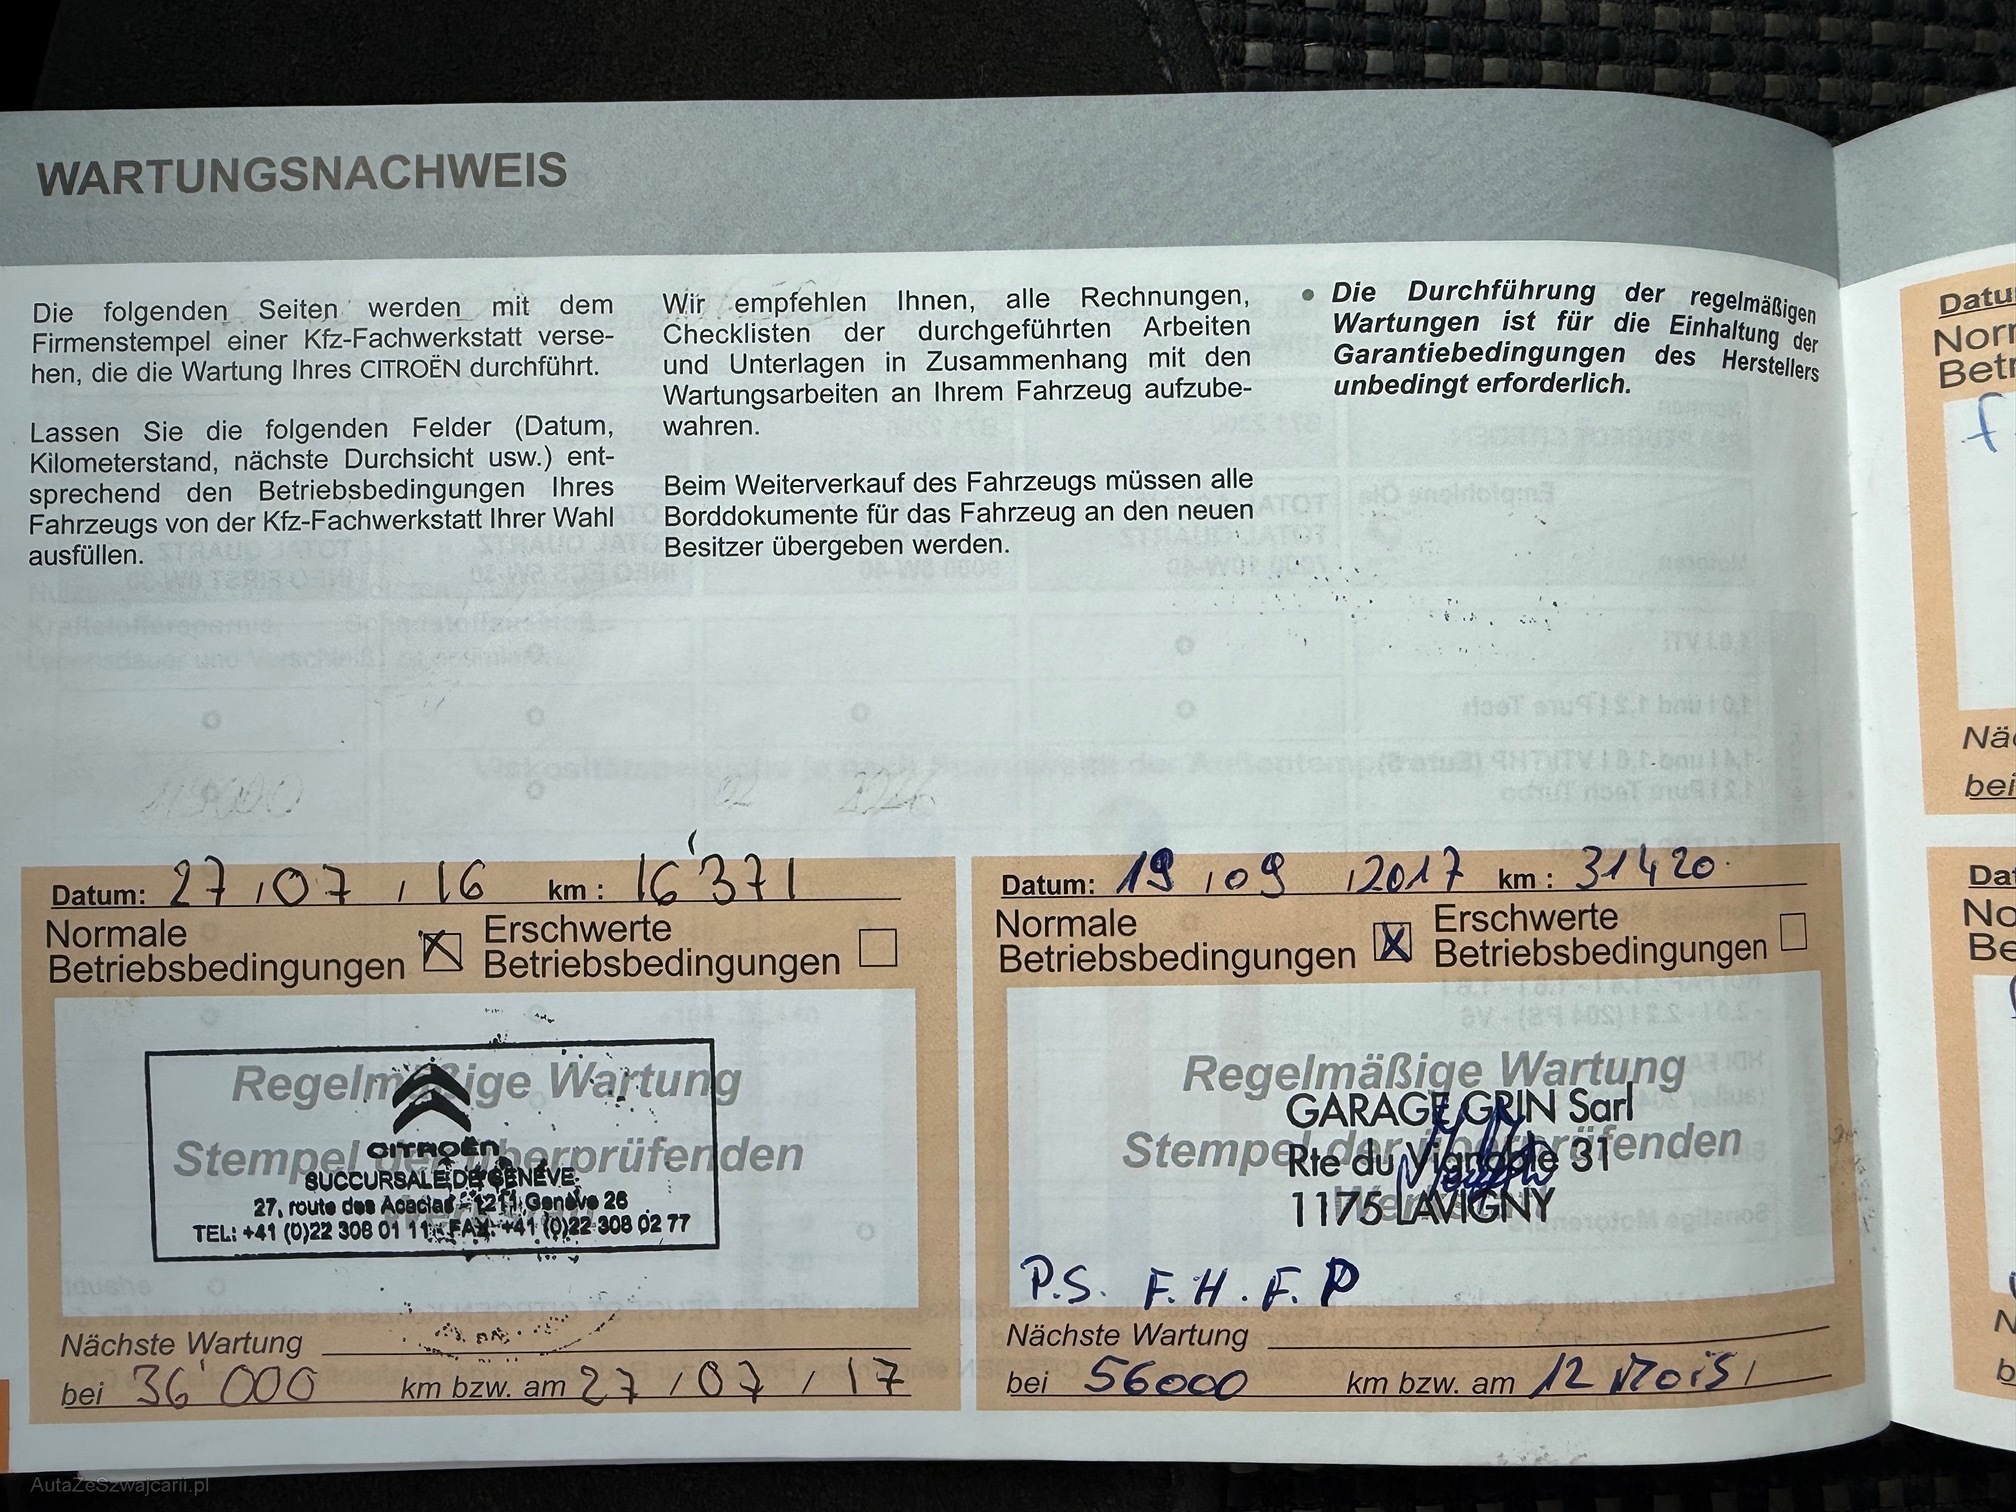 WARTUNGSNACHWEIS
Die folgenden Seiten werden mit dem
Firmenstempel einer Kfz-Fachwerkstatt verse-
hen, die die Wartung Ihres CITROËN durchführt.
Lassen Sie die folgenden Felder (Datum,
Kilometerstand, nächste Durchsicht usw.) ent-
sprechend den Betriebsbedingungen Ihres
Fahrzeugs von der Kfz-Fachwerkstatt Ihrer Wahl
ausfüllen.
Wir empfehlen Ihnen, alle Rechnungen,
Checklisten der durchgeführten Arbeiten
und Unterlagen in Zusammenhang mit den
Wartungsarbeiten an Ihrem Fahrzeug aufzube-
wahren.
Beim Weiterverkauf des Fahrzeugs müssen alle
Borddokumente für das Fahrzeug an den neuen
Besitzer übergeben werden.
• Die Durchführung der regelmäßigen
Wartungen ist für die Einhaltung der
Garantiebedingungen des Herstellers
unbedingt erforderlich.
Datum: 27 / 07 / 16 km : 16'371
Normale
Betriebsbedingungen
Erschwerte
Betriebsbedingungen
Regelmäßige Wartung
Stempel der überprüfenden
CITROËN
SUCCURSALE DE GENÈVE
27, route des Acacias - 1211 Genève 26
TEL: +41 (0)22 308 01 11 - FAX: +41 (0)22 308 02 77
Nächste Wartung
bei 36'000 km bzw. am 27 / 07 / 17
Datum: 19 / 09 / 2017 km : 31420
Normale
Betriebsbedingungen
Erschwerte
Betriebsbedingungen
Regelmäßige Wartung
GARAGE GRIN Sarl
Stempel der überprüfenden
Rte du Vignoble 31
Werkstatt
1175 LAVIGNY
P.S. F.H.F.P
Nächste Wartung
bei 56000 km bzw. am 12 Mois /
AutaZeSzwajcarii.pl